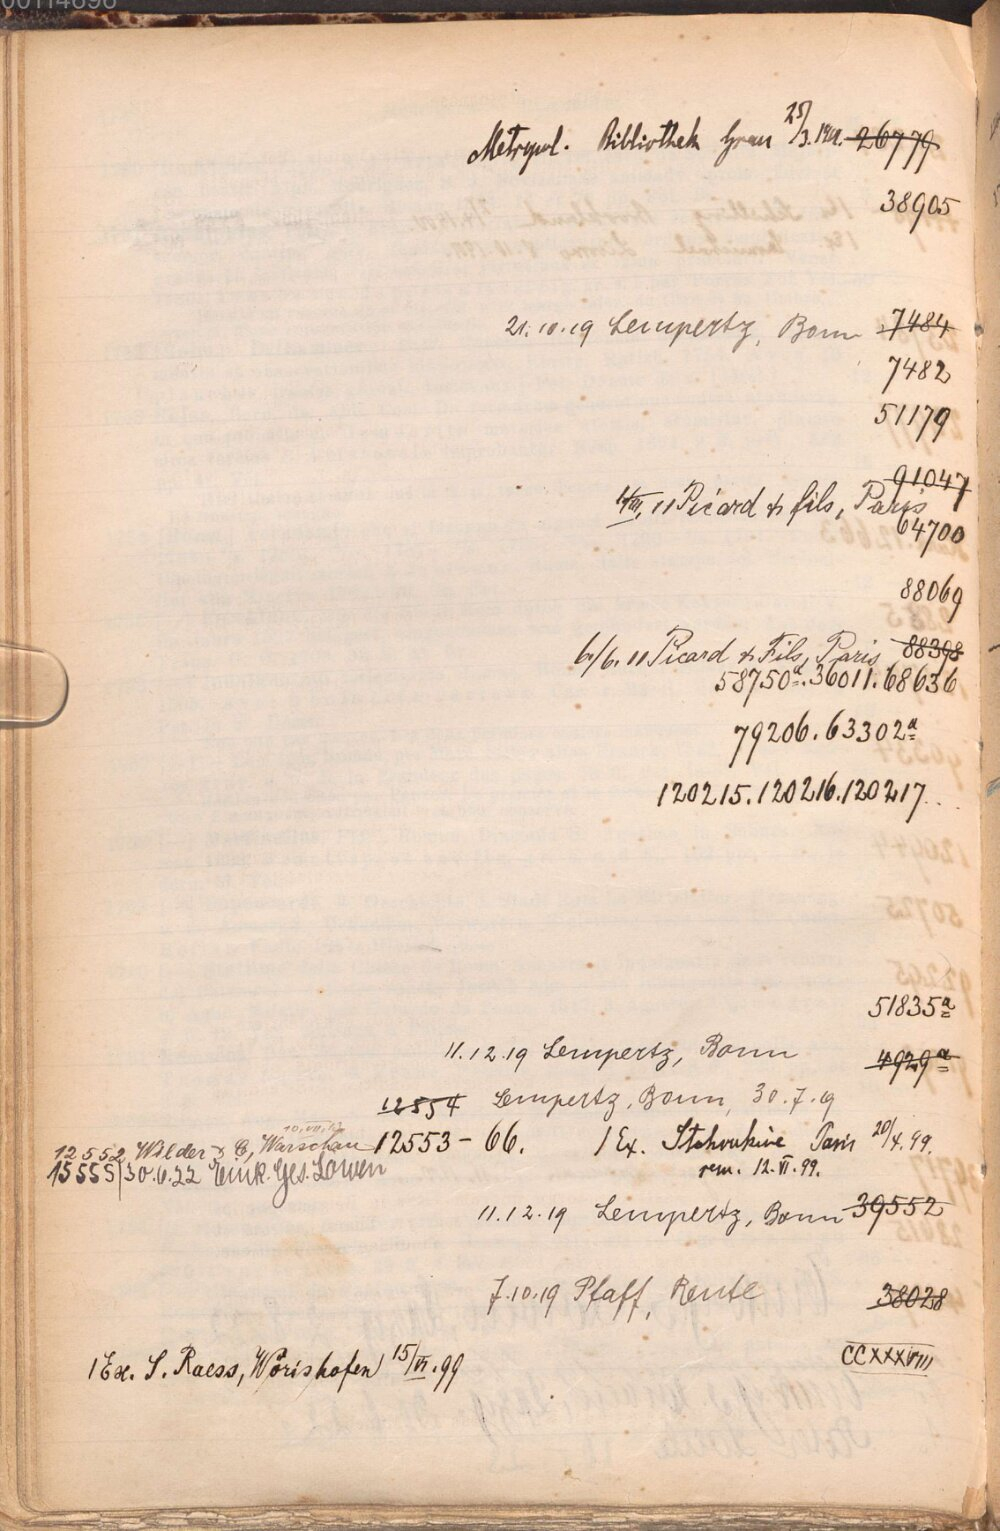 00114696
Metropol. Bibliothek Gran 25/3.1901. 26779
38905
21.10.19 Lempertz, Bonn 7484
7482
51179
91047
11 Picard & fils, Paris
64700
88069
6./6. 11 Picard & Fils, Paris 88398
58750a. 36011. 68636
79206. 63302a
120215. 120216. 120217.
51835a
11.12.19 Lempertz, Bonn 4929a
12554 Lempertz, Bonn, 30.7.19
10.VII.
12552 Wilder & C, Warschau 12553-66. 1 Ex. Paris 20/4.99.
15555 | 30.6.22 Eink. Ges. Löwen rem. 12.VI.99.
11.12.19 Lempertz, Bonn 39552
7.10.19 Pfaff, 38028
CCXXXVIII
1 Ex. S. Raess, Wörishofen 15/VI.99